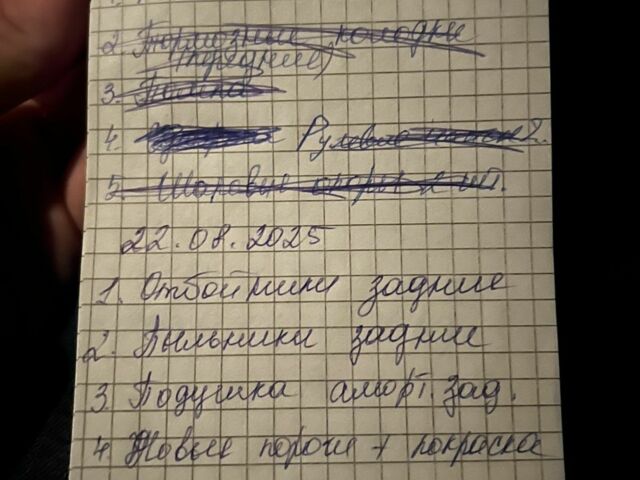 2. Тормозные колодки
(передние)
3.
4. Рулевые
5. Шаровые опоры 2 шт.
22.08.2025
1. Отбойники задние
2. Пыльники задние
3. Подушка аморт. зад.
4. Новые пороги + покраска